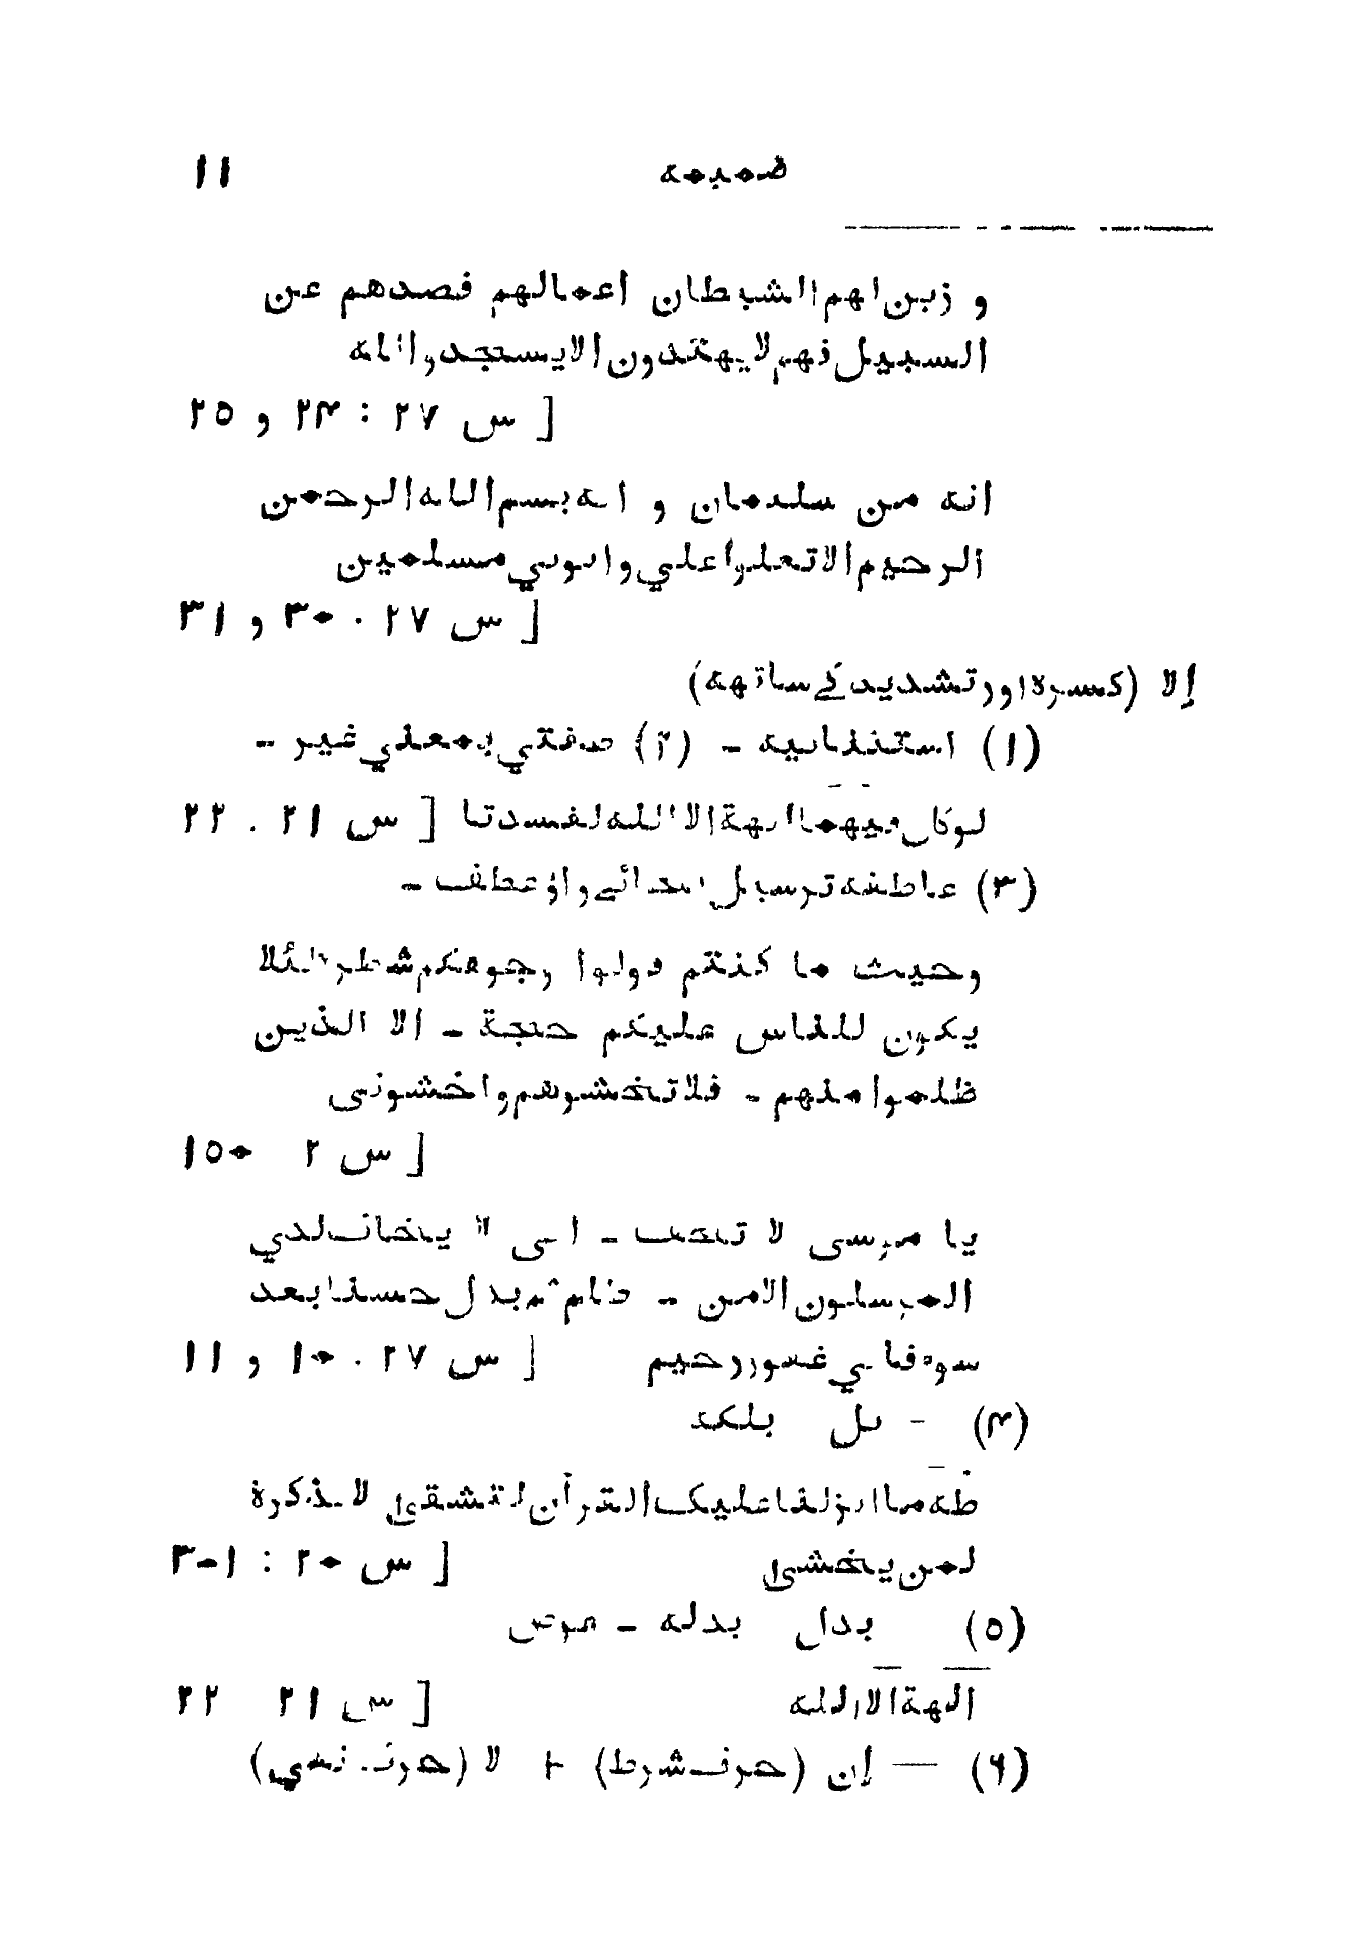 ضمیمه ۱۱
و زین لهم الشیطان اعمالهم فصدهم عن
السبیل فهم لا یهتدون الا یسجدوا لله
[ س ۲۷ : ۲۴ و ۲۵
انه من سلیمان و انه بسم الله الرحمن
الرحیم الا تعلوا علی واتونی مسلمین
[ س ۲۷ . ۳۰ و ۳۱
إلا (کسره اور تشدید کے ساتھه)
(۱) استثنائیه - (۲) صفتی بمعنی غیر -
لوکان فیهما الهة الا الله لفسدتا [ س ۲۱ . ۲۲
(۳) عاطفه ترسیل بجائے واؤ عطف -
وحیث ما کنتم فولوا وجوهکم شطره لئلا
یکون للناس علیکم حجة - الا الذین
ظلموا منهم - فلا تخشوهم واخشونی
[ س ۲ ۱۵۰
یا موسی لا تخف - انی لا یخاف لدی
المرسلون الا من - ظلم ثم بدل حسنا بعد
سوء فانی غفور رحیم [ س ۲۷ . ۱۰ و ۱۱
(۴) - بل بلکه
طه ما انزلنا علیک القرآن لتشقی الا تذکرة
لمن یخشی [ س ۲۰ : ۱-۳
(۵) بدل بدله - عوض
الهة الا الله [ س ۲۱ ۲۲
(۶) — إن (حرف شرط) + لا (حرف نفی)